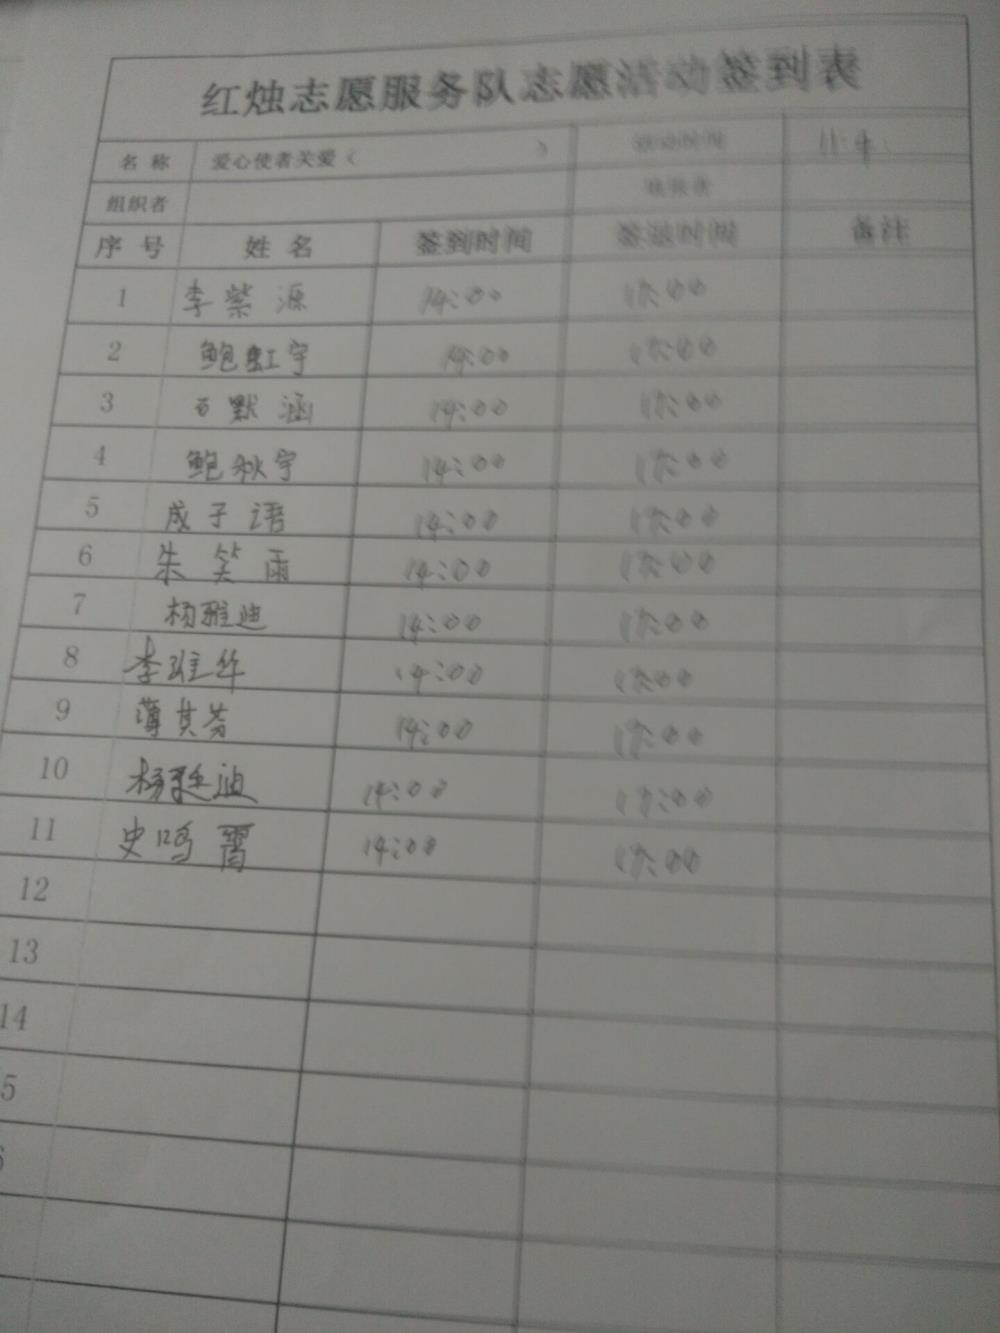 红烛志愿服务队志愿活动签到表
名 称 爱心使者关爱（ ） 活动时间 11.4.
组织者
序 号 姓 名 签到时间 签退时间 备注
1 李紫源 14:00 17:00
2 鲍虹宇 14:00 17:00
3 石默涵 14:00 17:00
4 鲍秋宇 14:00 17:00
5 成子语 14:00 17:00
6 朱笑雨 14:00 17:00
7 杨雅迪 14:00 17:00
8 李维华 14:00 17:00
9 薄其芳 14:00 17:00
10 杨廷迪 14:00 17:00
11 史鸣霄 14:00 17:00
12
13
14
5